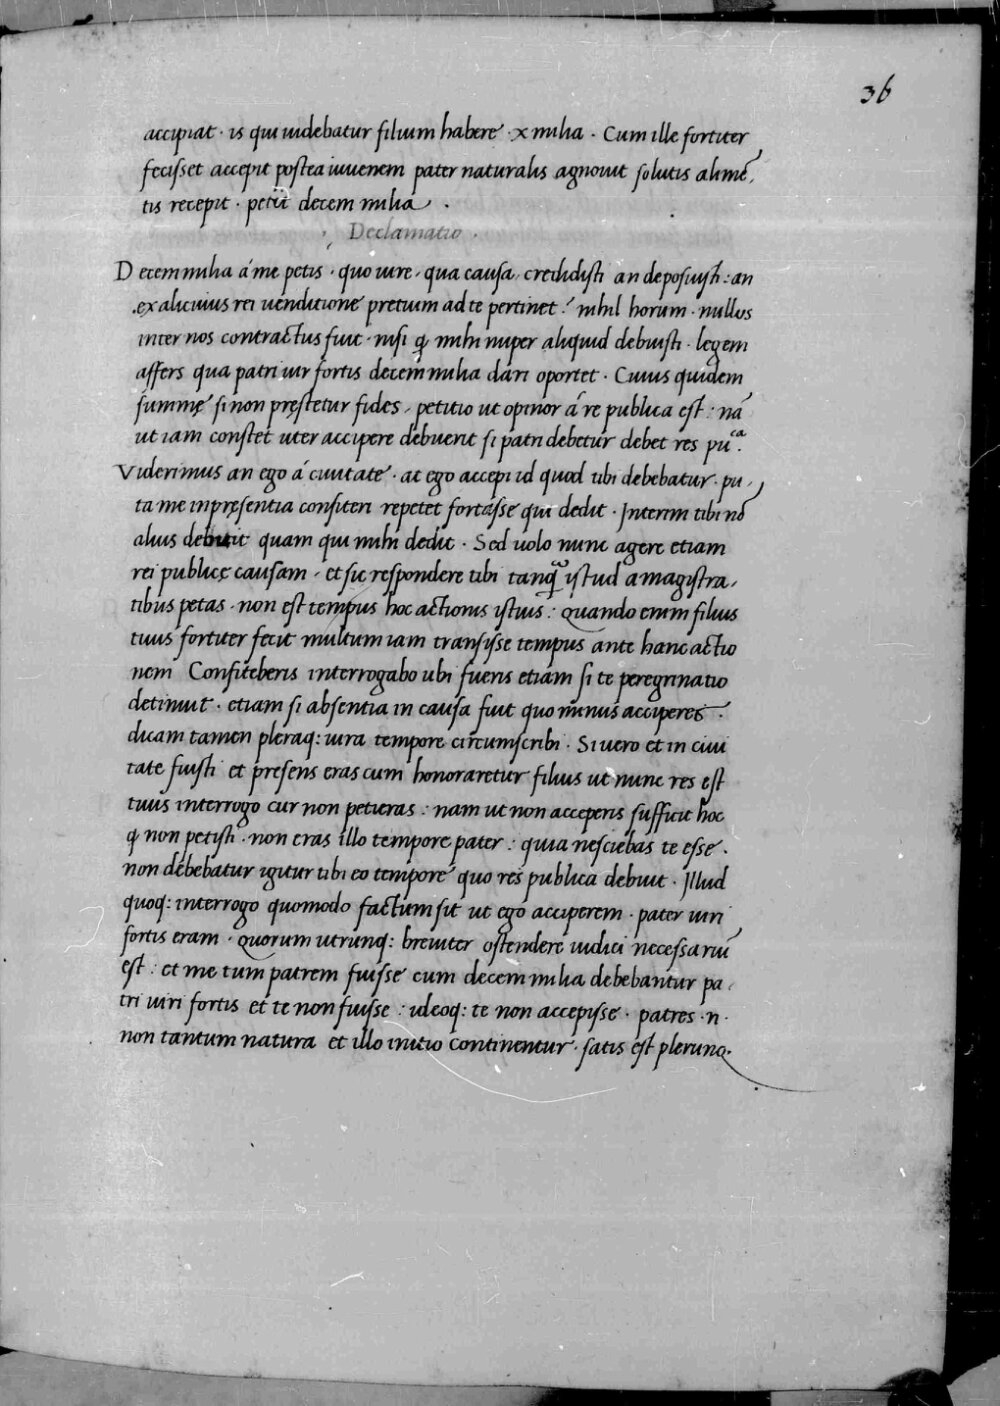 36
accipiat · is qui uidebatur filium habere · x milia · Cum ille fortiter
fecisset accepit postea iuuenem pater naturalis agnouit solutis alimē,
tis recepit · petit decem milia ·
Declamatio ·
Decem milia á me petis · quo iure, qua causa, credidisti an deposuisti : an
ex alicuius rei uenditione pretium ad te pertinet ? nihil horum · nullus
inter nos contractus fuit · nisi q̨ mihi nuper aliquid debuisti · legem
affers qua patri uir fortis decem milia dari oportet · Cuius quidem
summę si non pręstetur fides, petitio ut opinor á re publica est : nā
ut iam constet uter accipere debuerit si patri debetur debet res puᶜᵃ.
Viderimus an ego á ciuitate · at ego accepi id quod tibi debebatur · pu,
ta me inpręsentia confiteri repetet fortasse qui dedit · Interim tibi nō
alius debuit quam qui mihi dedit · Sed uolo nunc agere etiam
rei publicę causam, et sic respondere tibi tanq̃ istud a magistra,
tibus petas · non est tempus hoc actionis istius : Quando enim filius
tuus fortiter fecit multum iam transisse tempus ante hanc actio
nem Confiteberis interrogabo ubi fueris etiam si te peregrinatio
detinuit · etiam si absentia in causa fuit quo minus acciperes ·
dicam tamen pleraq: iura tempore circumscribi · Si uero et in ciui
tate fuisti et presens eras cum honoraretur filius ut nunc res est
tuus interrogo cur non petieras : nam ut non acceperis sufficit hoc
q̨ non petisti · non eras illo tempore pater : quia nesciebas te esse ·
non debebatur igitur tibi eo tempore quo res publica debuit · Illud
quoq: interrogo quomodo factum sit ut ego acciperem · pater uiri
fortis eram · quorum utrunq: breuiter ostendere iudici necessariū
est : et me tum patrem fuisse cum decem milia debebantur pa,
tri uiri fortis et te non fuisse : ideoq: te non accepisse · patres · n ·
non tantum natura et illo initio continentur · satis est plerunq·